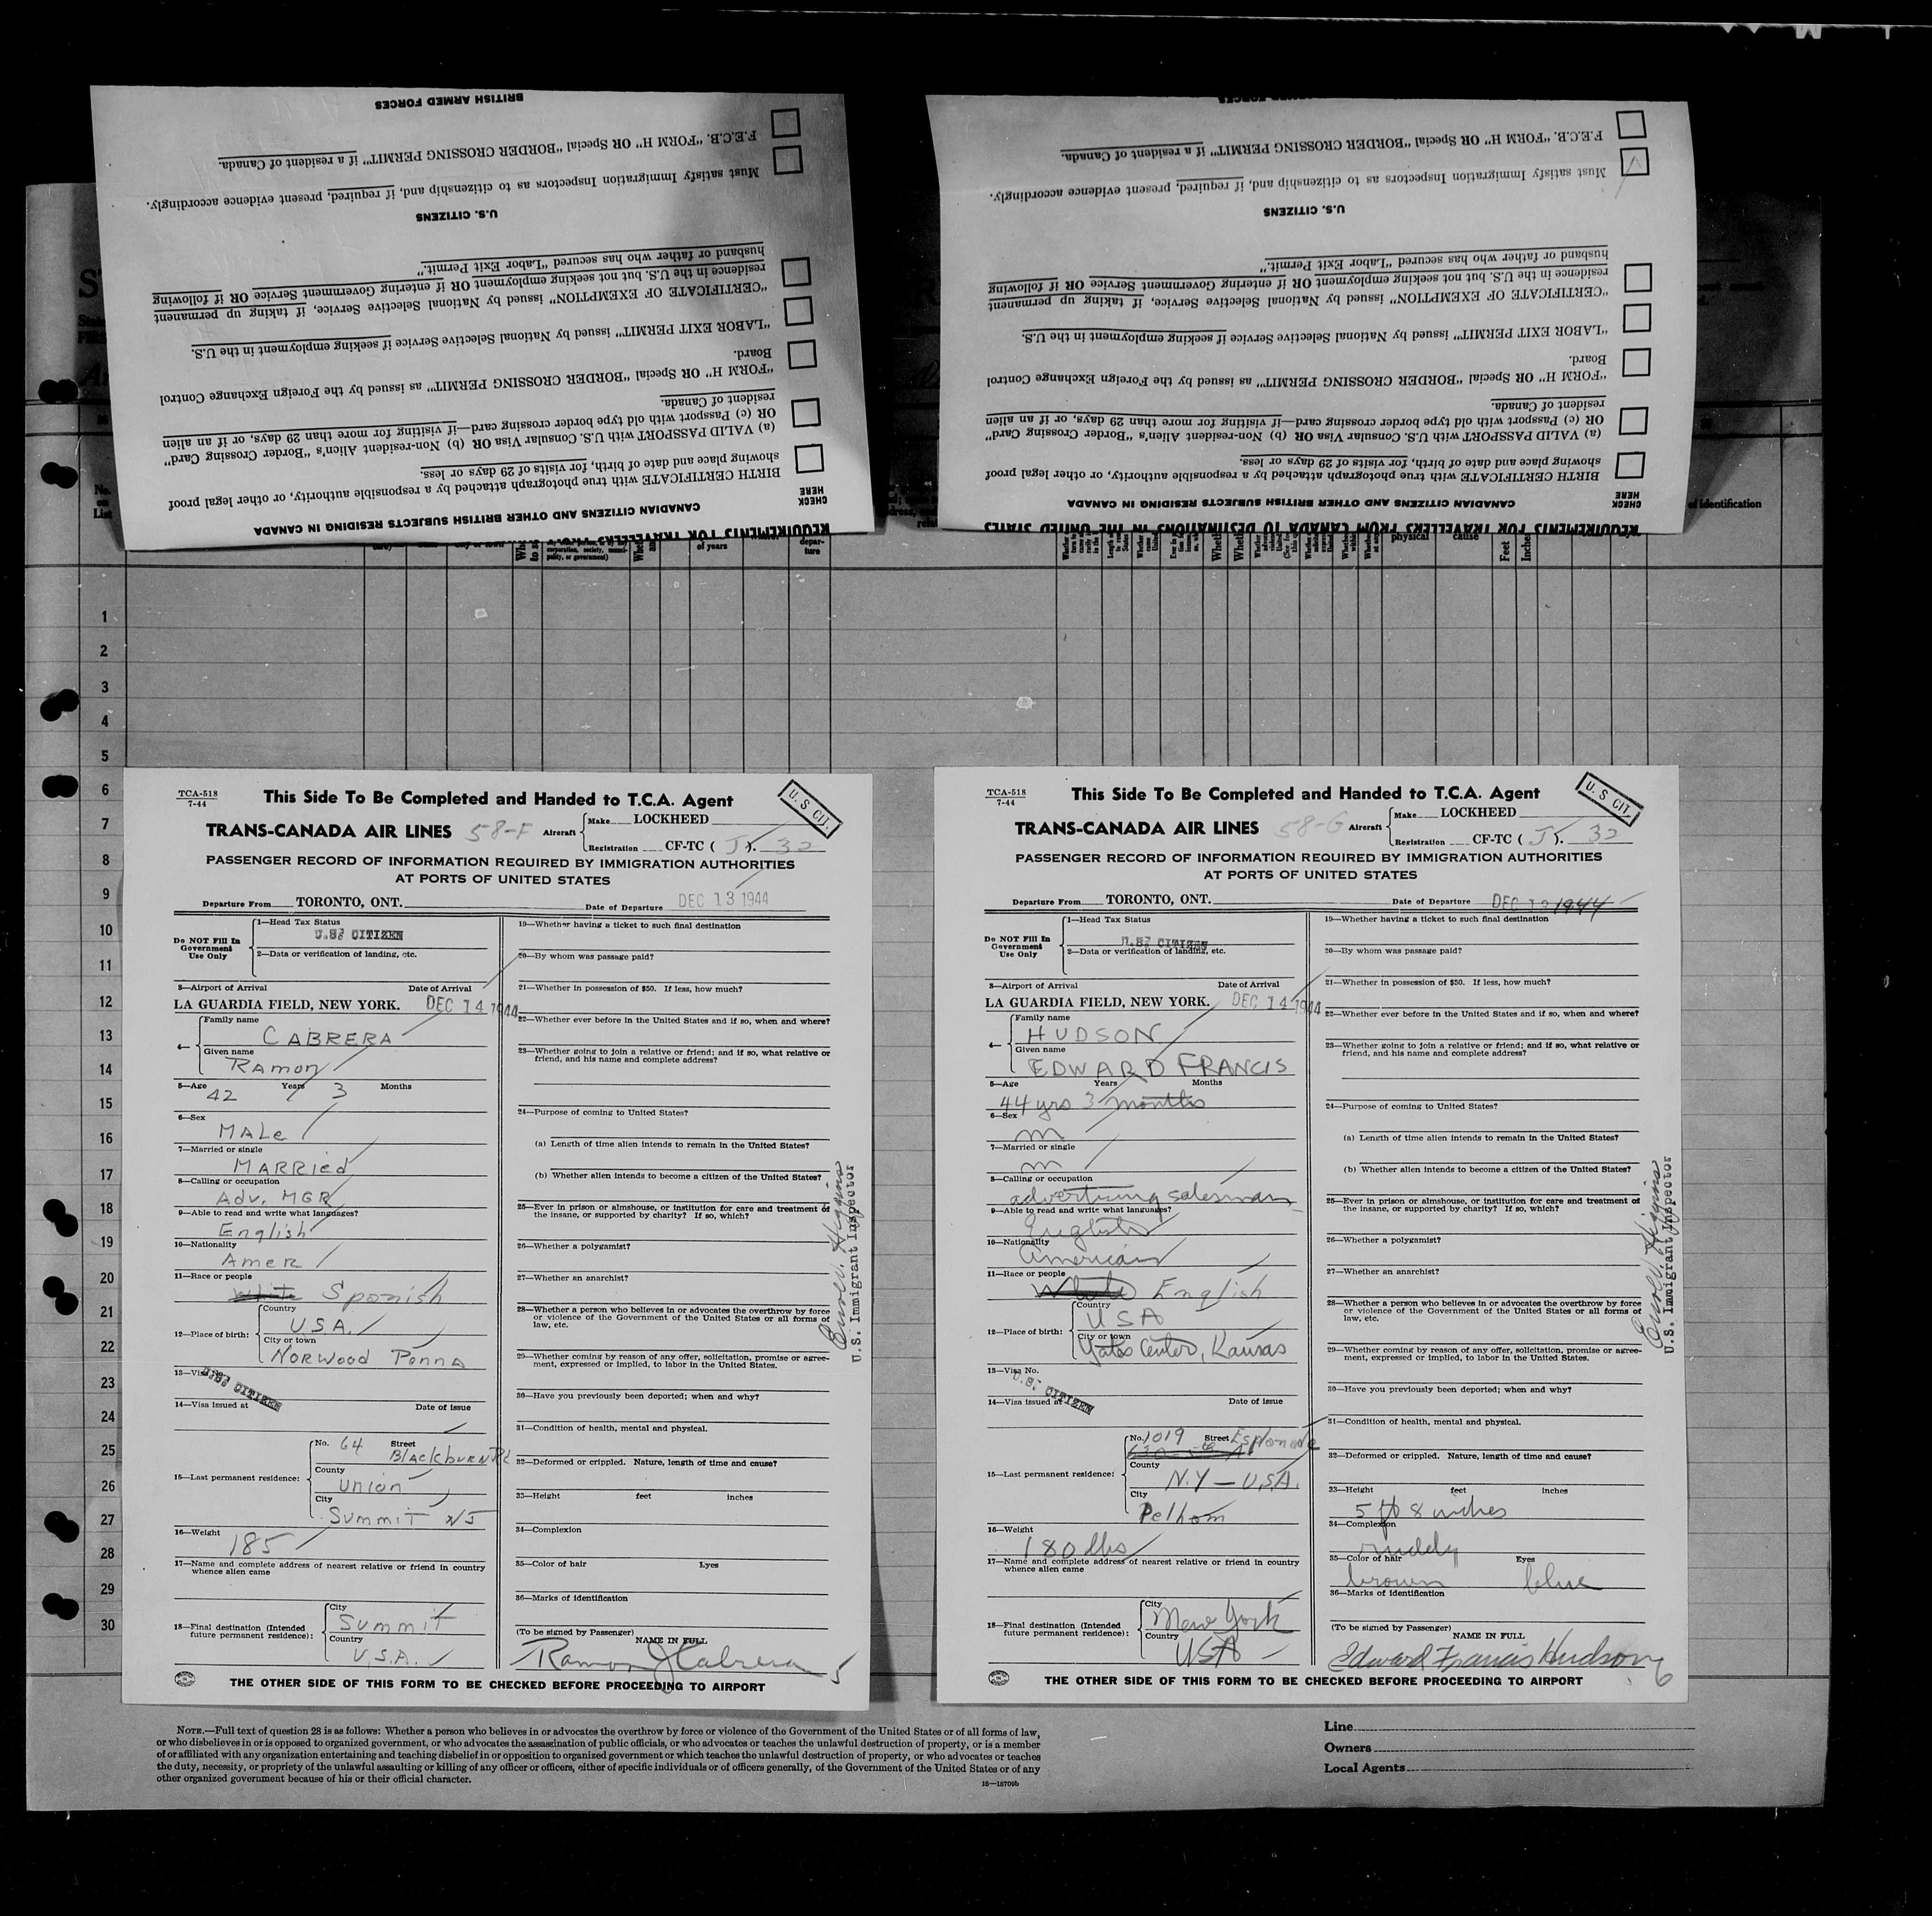 BRITISH ARMED FORCES
F.E.C.B. "FORM H" OR Special "BORDER CROSSING PERMIT" if a resident of Canada.
Must satisfy Immigration Inspectors as to citizenship and, if required, present evidence accordingly.
U.S. CITIZENS
husband or father who has secured "Labor Exit Permit."
residence in the U.S. but not seeking employment OR if entering Government Service OR if following
"CERTIFICATE OF EXEMPTION" issued by National Selective Service, if taking up permanent
"LABOR EXIT PERMIT" issued by National Selective Service if seeking employment in the U.S.
Board.
"FORM H" OR Special "BORDER CROSSING PERMIT" as issued by the Foreign Exchange Control
resident of Canada.
OR (c) Passport with old type border crossing card—if visiting for more than 29 days, or if an alien
(a) VALID PASSPORT with U.S. Consular Visa OR (b) Non-resident Alien's "Border Crossing Card"
showing place and date of birth, for visits of 29 days or less.
BIRTH CERTIFICATE with true photograph attached by a responsible authority, or other legal proof
CHECK HERE
CANADIAN CITIZENS AND OTHER BRITISH SUBJECTS RESIDING IN CANADA
REQUIREMENTS FOR TRAVELLERS FROM
F.E.C.B. "FORM H" OR Special "BORDER CROSSING PERMIT" if a resident of Canada.
Must satisfy Immigration Inspectors as to citizenship and, if required, present evidence accordingly.
U.S. CITIZENS
husband or father who has secured "Labor Exit Permit."
residence in the U.S. but not seeking employment OR if entering Government Service OR if following
"CERTIFICATE OF EXEMPTION" issued by National Selective Service, if taking up permanent
"LABOR EXIT PERMIT" issued by National Selective Service if seeking employment in the U.S.
Board.
"FORM H" OR Special "BORDER CROSSING PERMIT" as issued by the Foreign Exchange Control
resident of Canada.
OR (c) Passport with old type border crossing card—if visiting for more than 29 days, or if an alien
(a) VALID PASSPORT with U.S. Consular Visa OR (b) Non-resident Alien's "Border Crossing Card"
showing place and date of birth, for visits of 29 days or less.
BIRTH CERTIFICATE with true photograph attached by a responsible authority, or other legal proof
CHECK HERE
CANADIAN CITIZENS AND OTHER BRITISH SUBJECTS RESIDING IN CANADA
REQUIREMENTS FOR TRAVELLERS FROM CANADA TO DESTINATIONS IN THE UNITED STATES
No. on List
of identification
corporation, society, munici-
pality, or government)
of years
depar-
ture
physical
cause
Feet
Inches
1
2
3
4
5
6
7
8
9
10
11
12
13
14
15
16
17
18
19
20
21
22
23
24
25
26
27
28
29
30
TCA-518
7-44
This Side To Be Completed and Handed to T.C.A. Agent
U. S CIT.
TRANS-CANADA AIR LINES 58-F Aircraft
Make LOCKHEED
Registration CF-TC ( J ). 32
PASSENGER RECORD OF INFORMATION REQUIRED BY IMMIGRATION AUTHORITIES
AT PORTS OF UNITED STATES
Departure From TORONTO, ONT. Date of Departure DEC 13 1944
Do NOT Fill In Government Use Only
1—Head Tax Status
U.S. CITIZEN
2—Data or verification of landing, etc.
3—Airport of Arrival Date of Arrival
LA GUARDIA FIELD, NEW YORK. DEC 14 1944
4—
Family name
CABRERA
Given name
RAmon
5—Age Years Months
42 3
6—Sex
MALe
7—Married or single
MARRied
8—Calling or occupation
Adv. MGR
9—Able to read and write what languages?
English
10—Nationality
Amer
11—Race or people
White Spanish
12—Place of birth:
Country
U.S.A.
City or town
NORWOOD PENNA
13—Visa
U.S. CITIZEN
14—Visa issued at Date of issue
15—Last permanent residence:
No. 64 Street BlackburN Rd
County
UNION
City
Summit NJ
16—Weight
185
17—Name and complete address of nearest relative or friend in country
whence alien came
18—Final destination (Intended
future permanent residence):
City
Summit
Country
U.S.A.
19—Whether having a ticket to such final destination
20—By whom was passage paid?
21—Whether in possession of $50. If less, how much?
22—Whether ever before in the United States and if so, when and where?
23—Whether going to join a relative or friend; and if so, what relative or
friend, and his name and complete address?
24—Purpose of coming to United States?
(a) Length of time alien intends to remain in the United States?
(b) Whether alien intends to become a citizen of the United States?
25—Ever in prison or almshouse, or institution for care and treatment of
the insane, or supported by charity? If so, which?
26—Whether a polygamist?
27—Whether an anarchist?
28—Whether a person who believes in or advocates the overthrow by force
or violence of the Government of the United States or all forms of
law, etc.
29—Whether coming by reason of any offer, solicitation, promise or agree-
ment, expressed or implied, to labor in the United States.
30—Have you previously been deported; when and why?
31—Condition of health, mental and physical.
32—Deformed or crippled. Nature, length of time and cause?
33—Height feet inches
34—Complexion
35—Color of hair Eyes
36—Marks of identification
(To be signed by Passenger)
NAME IN FULL
Ramon J Cabrera 5
U.S. Immigrant Inspector
THE OTHER SIDE OF THIS FORM TO BE CHECKED BEFORE PROCEEDING TO AIRPORT
TCA-518
7-44
This Side To Be Completed and Handed to T.C.A. Agent
U. S CIT.
TRANS-CANADA AIR LINES 58-G Aircraft
Make LOCKHEED
Registration CF-TC ( J ). 32
PASSENGER RECORD OF INFORMATION REQUIRED BY IMMIGRATION AUTHORITIES
AT PORTS OF UNITED STATES
Departure From TORONTO, ONT. Date of Departure DEC 13 1944
Do NOT Fill In Government Use Only
1—Head Tax Status
U.S. CITIZEN
2—Data or verification of landing, etc.
3—Airport of Arrival Date of Arrival
LA GUARDIA FIELD, NEW YORK. DEC 14 1944
4—
Family name
HUDSON
Given name
EDWARD FRANCIS
5—Age Years Months
44 yrs 3 months
6—Sex
m
7—Married or single
m
8—Calling or occupation
advertising salesman
9—Able to read and write what languages?
English
10—Nationality
American
11—Race or people
White English
12—Place of birth:
Country
USA
City or town
Yates Center, Kansas
13—Visa No.
U.S. CITIZEN
14—Visa issued at Date of issue
15—Last permanent residence:
No. 1019 Street Esplanade
County
N.Y — U.S.A.
City
Pelham
16—Weight
180 lbs
17—Name and complete address of nearest relative or friend in country
whence alien came
18—Final destination (Intended
future permanent residence):
City
New York
Country
USA
19—Whether having a ticket to such final destination
20—By whom was passage paid?
21—Whether in possession of $50. If less, how much?
22—Whether ever before in the United States and if so, when and where?
23—Whether going to join a relative or friend; and if so, what relative or
friend, and his name and complete address?
24—Purpose of coming to United States?
(a) Length of time alien intends to remain in the United States?
(b) Whether alien intends to become a citizen of the United States?
25—Ever in prison or almshouse, or institution for care and treatment of
the insane, or supported by charity? If so, which?
26—Whether a polygamist?
27—Whether an anarchist?
28—Whether a person who believes in or advocates the overthrow by force
or violence of the Government of the United States or all forms of
law, etc.
29—Whether coming by reason of any offer, solicitation, promise or agree-
ment, expressed or implied, to labor in the United States.
30—Have you previously been deported; when and why?
31—Condition of health, mental and physical.
32—Deformed or crippled. Nature, length of time and cause?
33—Height feet inches
5 ft 8 inches
34—Complexion
ruddy
35—Color of hair Eyes
brown blue
36—Marks of identification
(To be signed by Passenger)
NAME IN FULL
Edward Francis Hudson 6
U.S. Immigrant Inspector
THE OTHER SIDE OF THIS FORM TO BE CHECKED BEFORE PROCEEDING TO AIRPORT
NOTE.—Full text of question 28 is as follows: Whether a person who believes in or advocates the overthrow by force or violence of the Government of the United States or of all forms of law,
or who disbelieves in or is opposed to organized government, or who advocates the assassination of public officials, or who advocates or teaches the unlawful destruction of property, or is a member
of or affiliated with any organization entertaining and teaching disbelief in or opposition to organized government or which teaches the unlawful destruction of property, or who advocates or teaches
the duty, necessity, or propriety of the unlawful assaulting or killing of any officer or officers, either of specific individuals or of officers generally, of the Government of the United States or of any
other organized government because of his or their official character.
16—18709b
Line
Owners
Local Agents